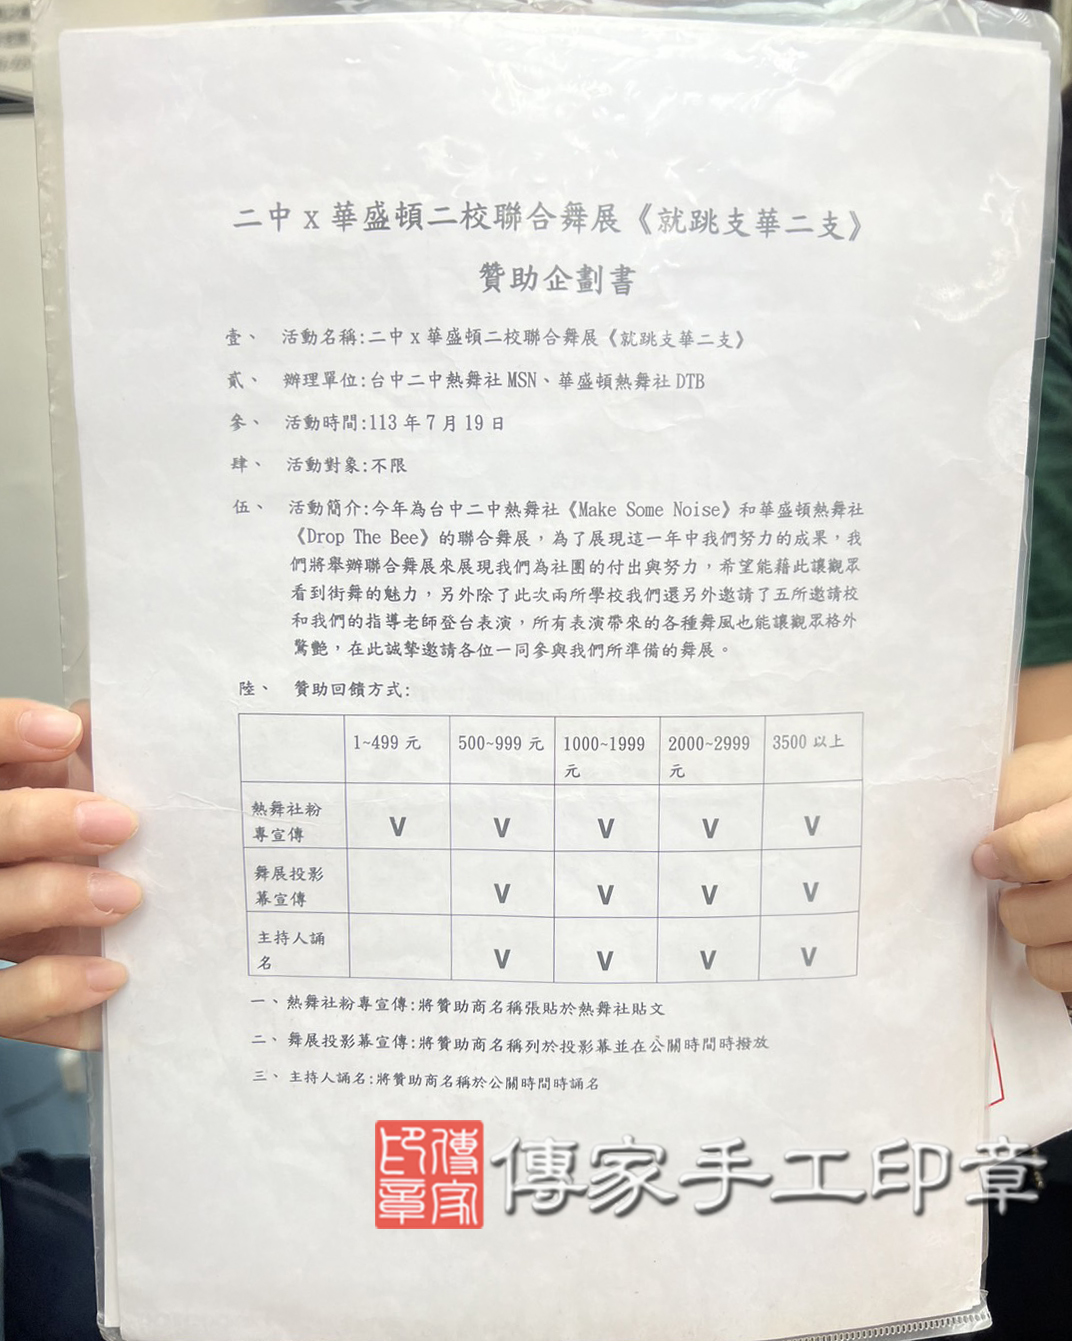 二中 x 華盛頓二校聯合舞展《就跳支華二支》
贊助企劃書
壹、 活動名稱:二中 x 華盛頓二校聯合舞展《就跳支華二支》
貳、 辦理單位:台中二中熱舞社 MSN、華盛頓熱舞社 DTB
參、 活動時間:113 年 7 月 19 日
肆、 活動對象:不限
伍、 活動簡介:今年為台中二中熱舞社《Make Some Noise》和華盛頓熱舞社
《Drop The Bee》的聯合舞展，為了展現這一年中我們努力的成果，我
們將舉辦聯合舞展來展現我們為社團的付出與努力，希望能藉此讓觀眾
看到街舞的魅力，另外除了此次兩所學校我們還另外邀請了五所邀請校
和我們的指導老師登台表演，所有表演帶來的各種舞風也能讓觀眾格外
驚艷，在此誠摯邀請各位一同參與我們所準備的舞展。
陸、 贊助回饋方式:
1~499 元 500~999 元 1000~1999 2000~2999 3500 以上
元 元
熱舞社粉
專宣傳 V V V V V
舞展投影
幕宣傳 V V V V
主持人誦
名 V V V V
一、熱舞社粉專宣傳:將贊助商名稱張貼於熱舞社貼文
二、舞展投影幕宣傳:將贊助商名稱列於投影幕並在公關時間時撥放
三、主持人誦名:將贊助商名稱於公關時間時誦名
傳家印章 傳家手工印章